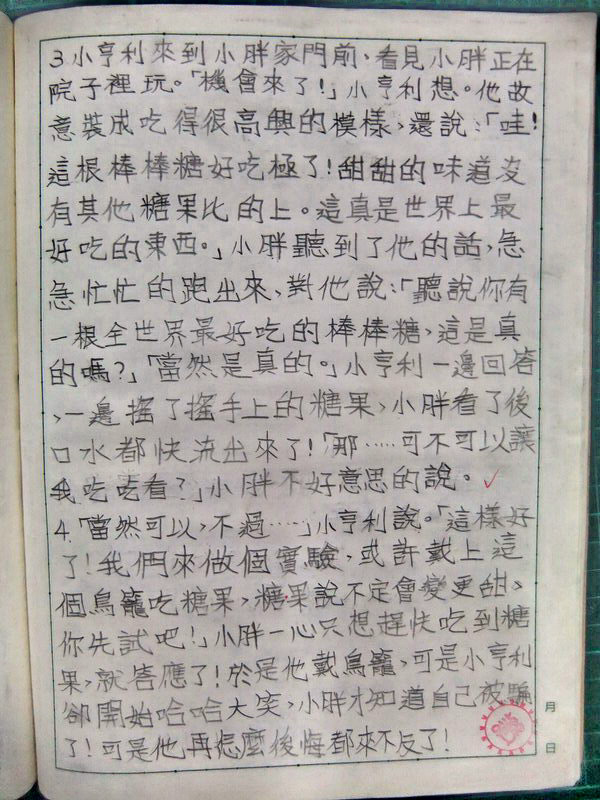 3.小亨利來到小胖家門前,看見小胖正在
院子裡玩。「機會來了!」小亨利想。他故
意裝成吃得很高興的模樣,還說:「哇!
這根棒棒糖好吃極了!甜甜的味道沒
有其他糖果比的上。這真是世界上最
好吃的東西。」小胖聽到了他的話,急
急忙忙的跑出來,對他說:「聽說你有
一根全世界最好吃的棒棒糖,這是真
的嗎?」「當然是真的。」小亨利一邊回答
,一邊搖了搖手上的糖果,小胖看了後
口水都快流出來了!「那……可不可以讓
我吃吃看?」小胖不好意思的說。
4.「當然可以,不過……」小亨利說。「這樣好
了!我們來做個實驗,或許戴上這
個鳥籠吃糖果,糖果說不定會變更甜、
你先試吧!」小胖一心只想趕快吃到糖
果,就答應了!於是他戴鳥籠,可是小亨利
卻開始哈哈大笑,小胖才知道自己被騙
了!可是他再怎麼後悔都來不及了!
月
日